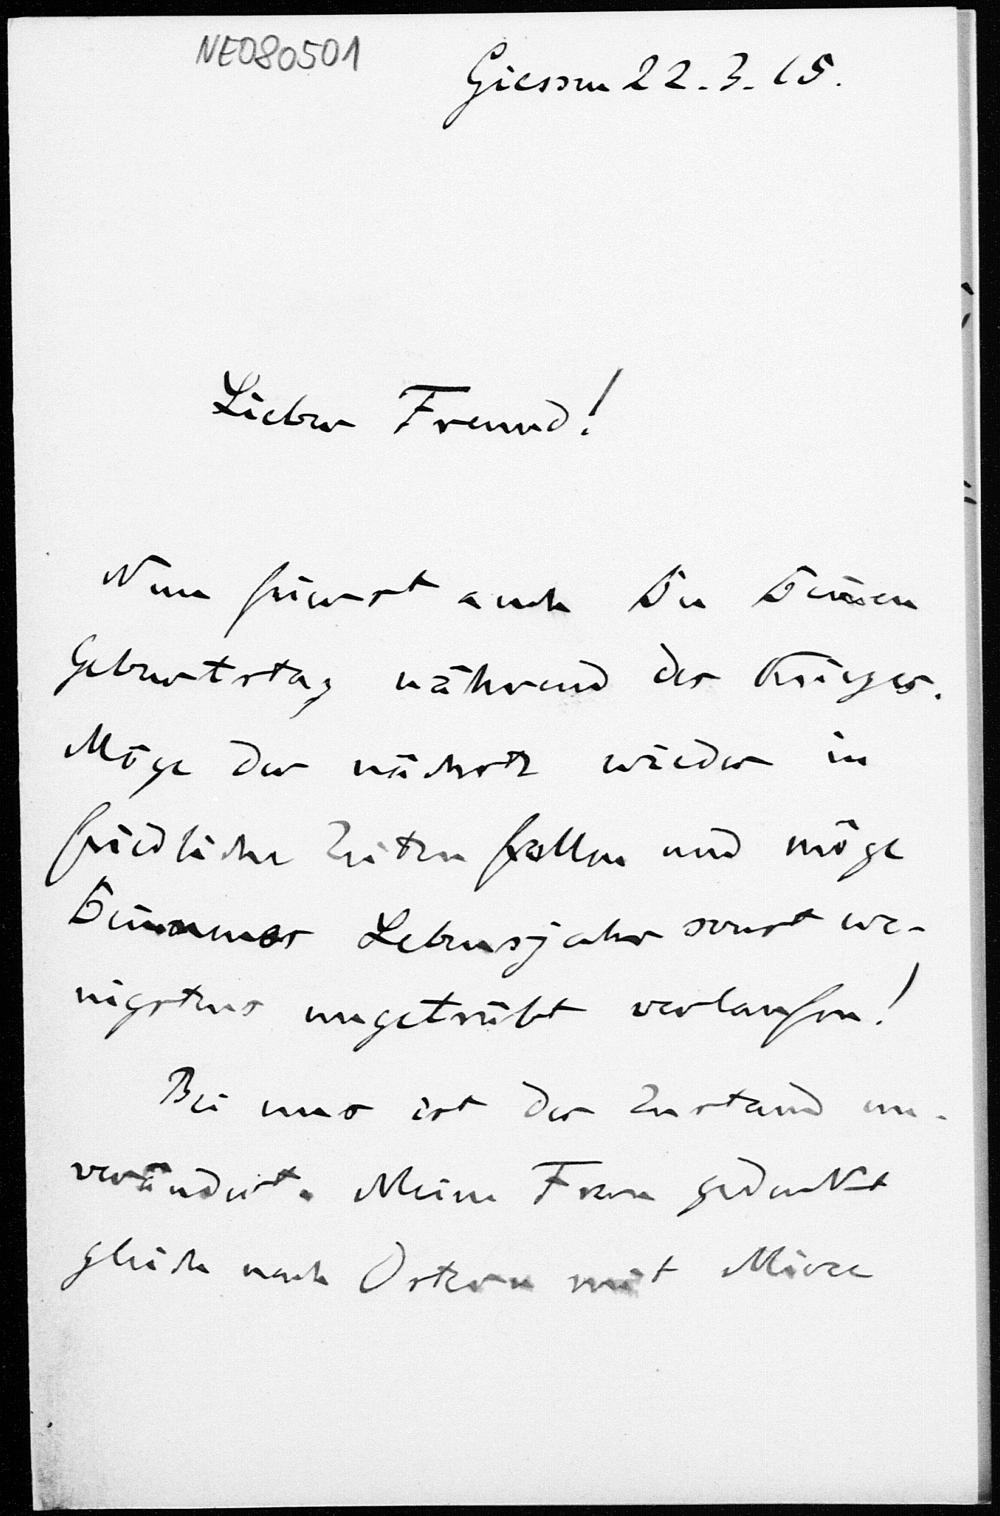 NE080501
Giessen 22.3.15.
Lieber Freund!
Nun feierst auch Du Deinen
Geburtstag während des Krieges.
Möge der nächste wieder in
friedliche Zeiten fallen und möge
Lebensjahr sonst we-
nigstens ungetrübt verlaufen!
Bei uns ist der Zustand un-
verändert. Meine Frau gedenkt
gleich nach Ostern mit